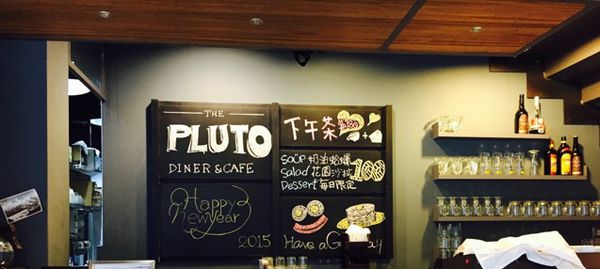 THE
PLUTO
DINER & CAFE
Happy
New Year
2015
下午茶
+
Soup 奶油蛤蠣
Salad 花園沙拉
100
Dessert 每日限定
Have a